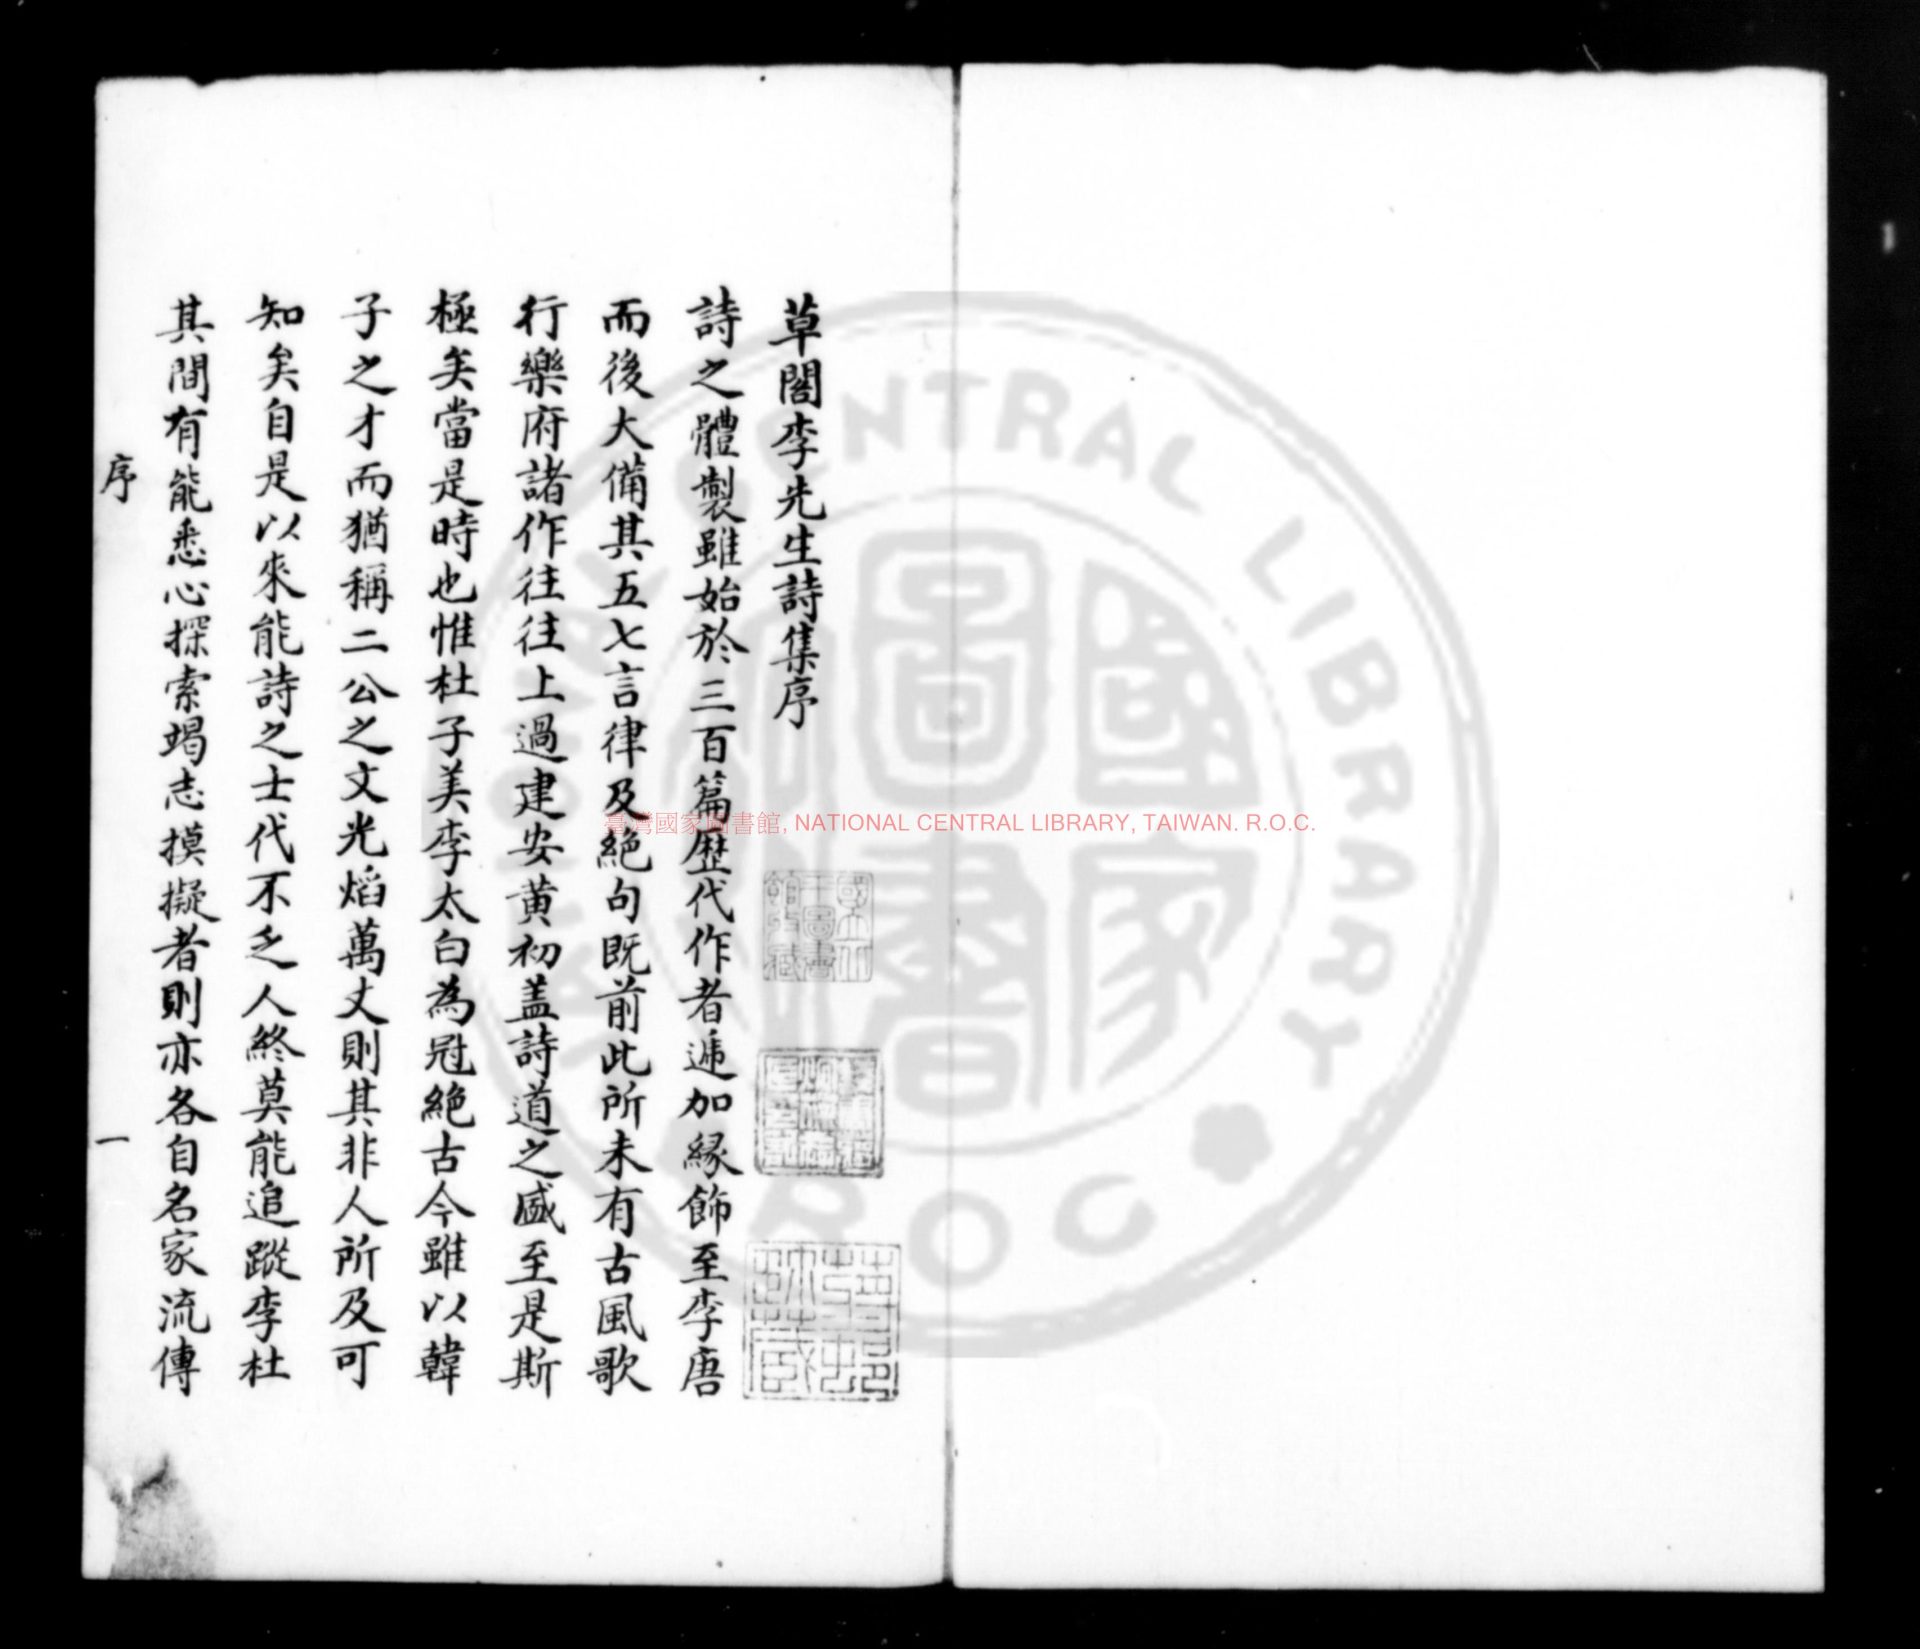 草閣李先生詩集序
詩之體製雖始於三百篇歷代作者遞加緣飾至李唐
而後大備其五七言律及絕句既前此所未有古風歌
行樂府諸作往往上過建安黃初蓋詩道之盛至是斯
極矣當是時也惟杜子美李太白為冠絕古今雖以韓
子之才而猶稱二公之文光熖萬丈則其非人所及可
知矣自是以來能詩之士代不乏人終莫能追蹤李杜
其間有能悉心探索竭志摸擬者則亦各自名家流傳
序
一
臺灣國家圖書館, NATIONAL CENTRAL LIBRARY, TAIWAN. R.O.C.
NATIONAL CENTRAL LIBRARY
ROC
國家圖書館